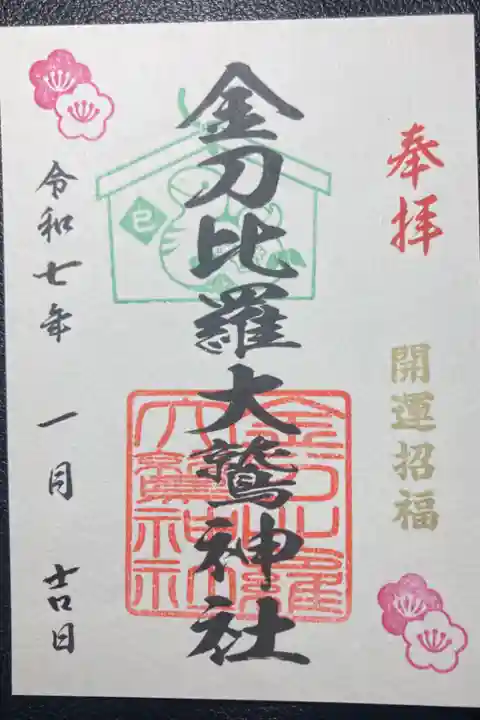 奉拝
開運招福
金刀比羅大鷲神社
巳
金刀比羅大鷲神社
令和七年 一月 吉日